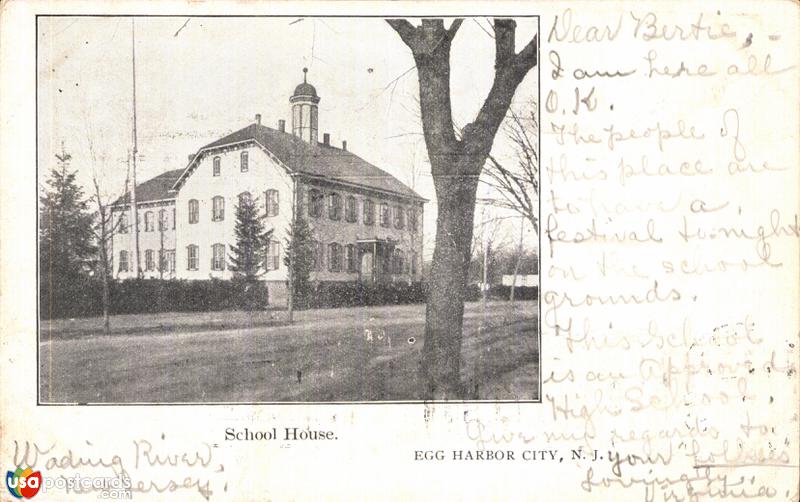 Dear Bertie, -
I am here all
O.K.
The people of
this place are
to have a
festival to-night
on the school
grounds.
This School
is an Approved
High School.
Give my regards to
your
Lovingly
Virginia.
School House.
EGG HARBOR CITY, N. J.
Wading River,
N. Jersey.
usapostcards
.com